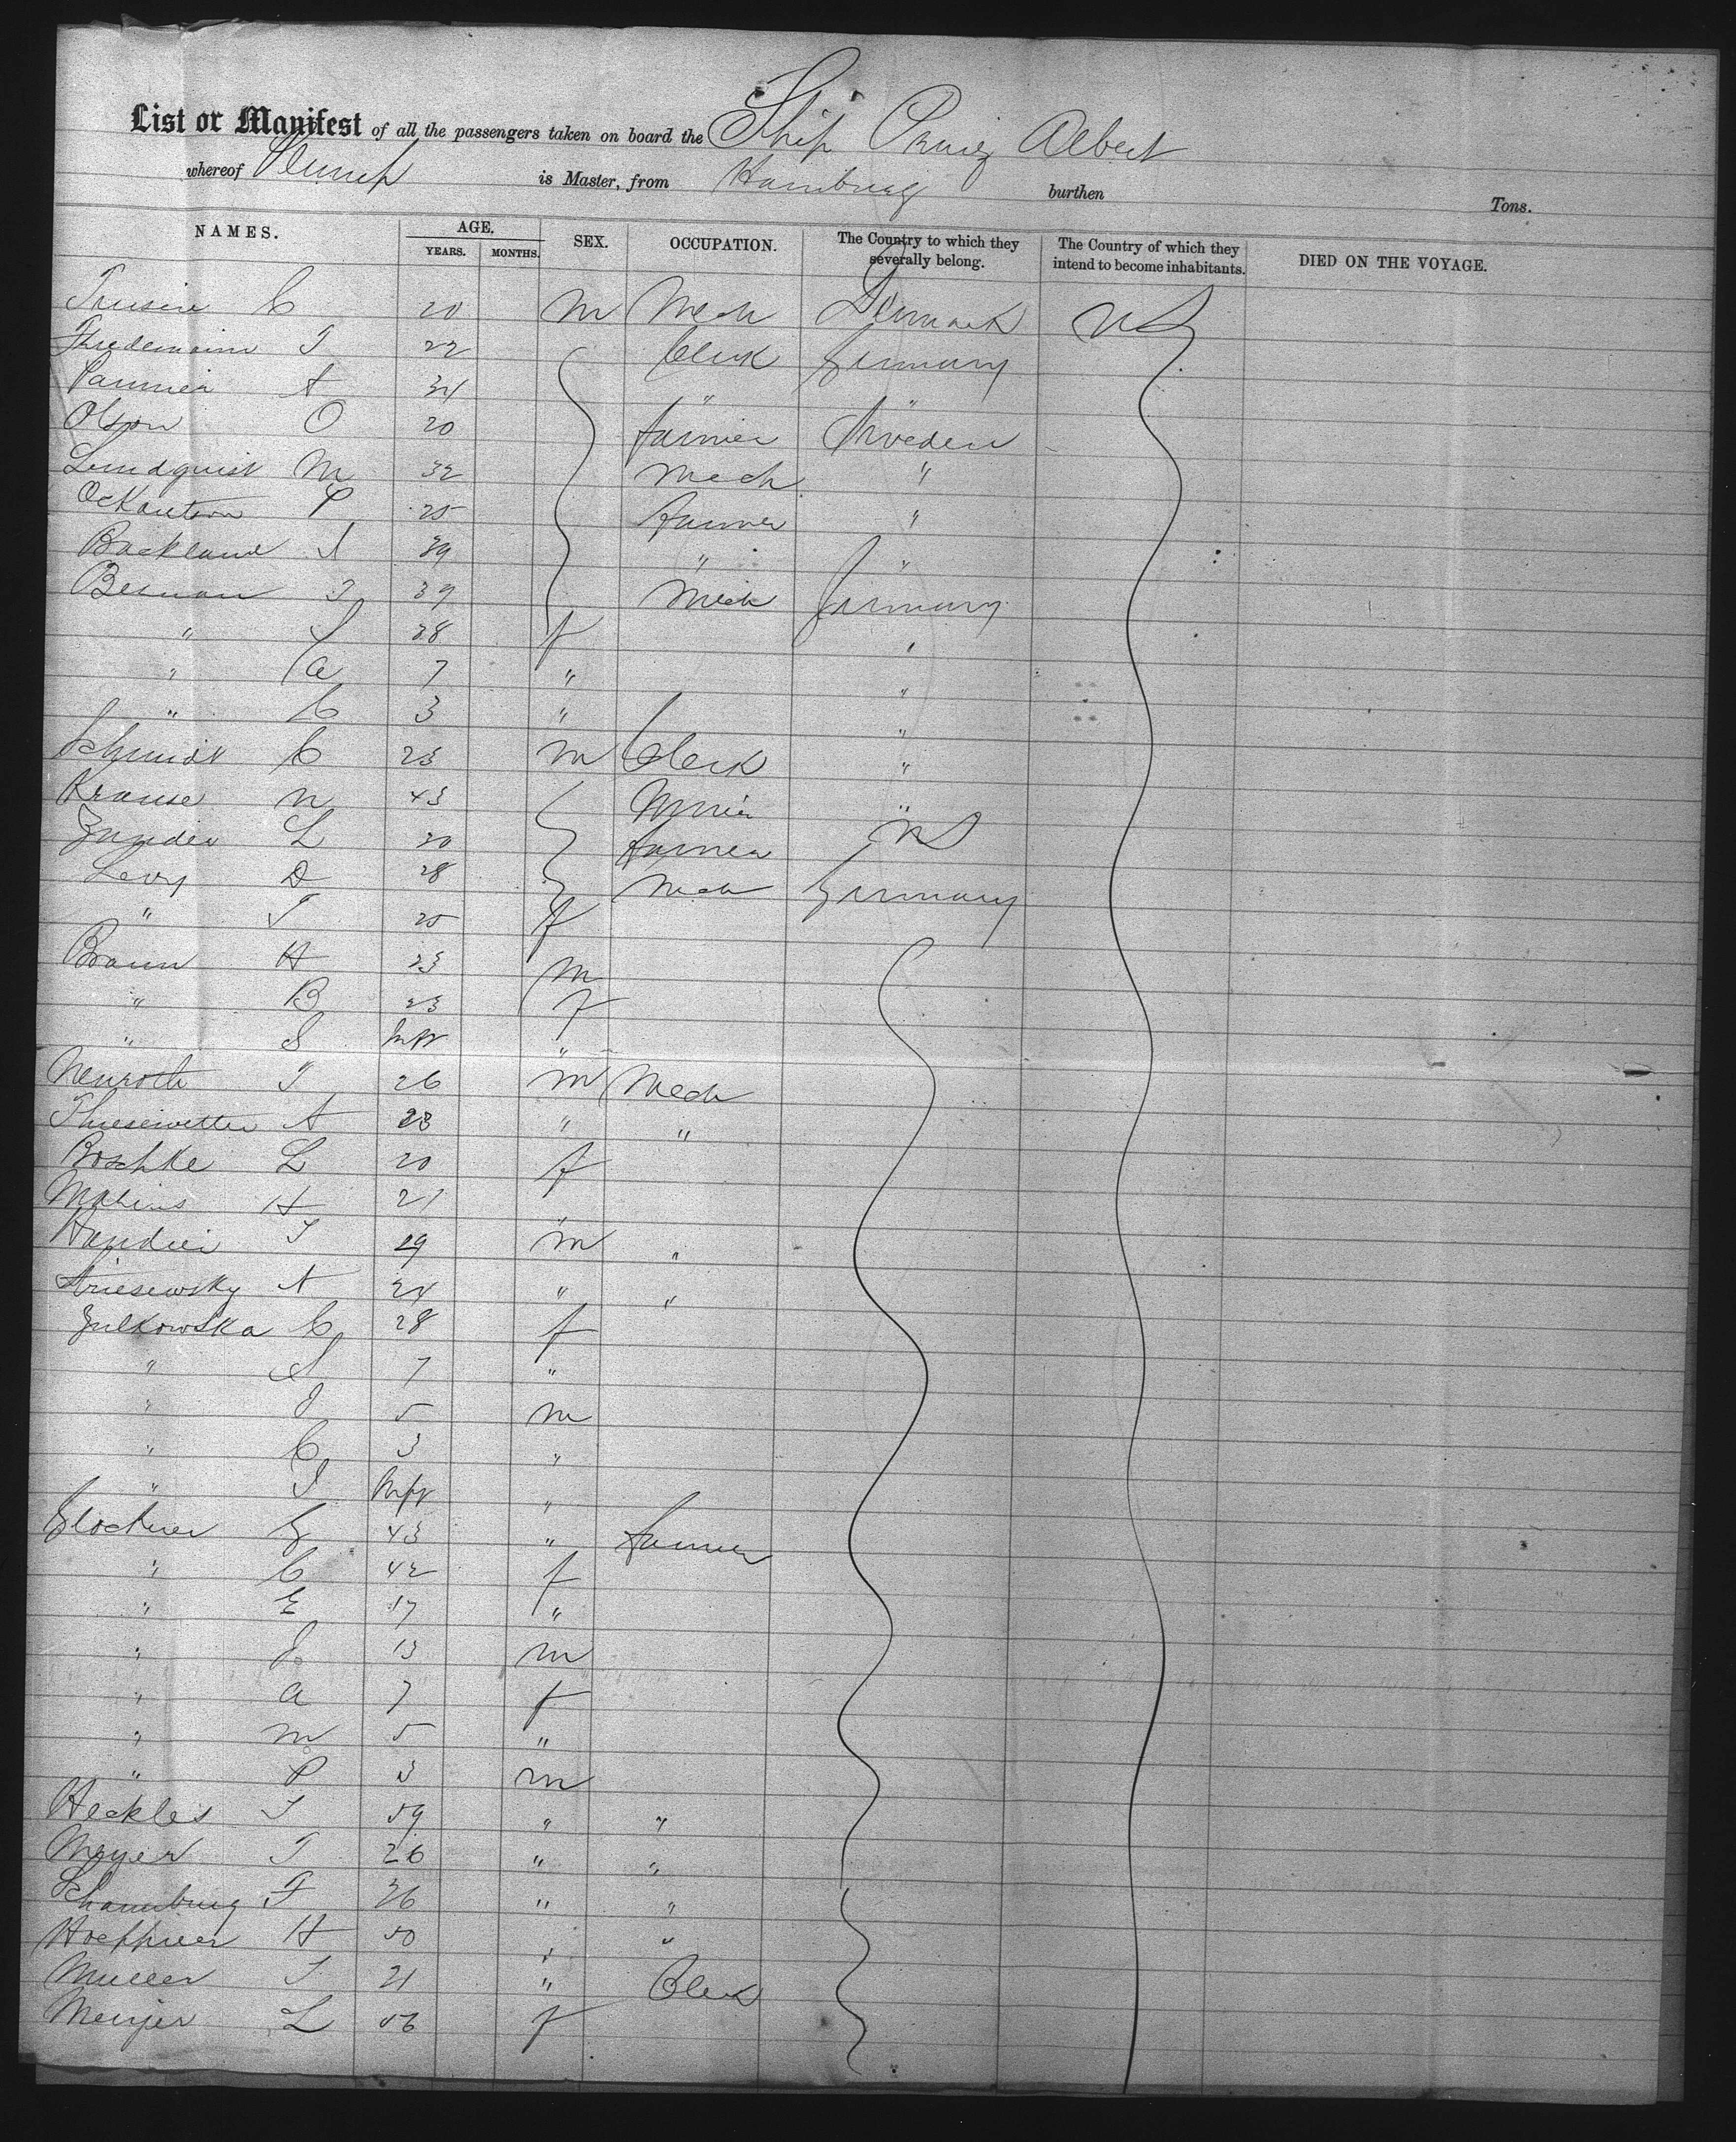 List or Manifest of all the passengers taken on board the Ship Prinz Albert
whereof is Master, from Hamburg burthen Tons.
NAMES. AGE. YEARS. MONTHS. SEX. OCCUPATION. The Country to which they severally belong. The Country of which they intend to become inhabitants. DIED ON THE VOYAGE.
C 20 m Mech Denmark US
Friedemann J 22 Clerk Germany
A 34 " "
Olson O 20 farmer Sweden
Lundquist M 32 Mech "
P 25 farmer "
Backlund 39 " "
Berman J 39 Mech Germany
" S 28 f "
" a 7 " "
" C 3 " "
Schmidt C 23 m Clerk "
Krause N 43 "
Zander L 20 farmer US
Levy D 28 Mech Germany
" J 25 f
Braun H 23 m
" B 23 f
" S Inft "
Neuroth J 26 m Mech
A 23 " "
Boschke L 20 f
H 21 "
J 29 m "
A 24 " "
Zulkowska C 28 f
" S 7 "
" J 5 m
" C 3 "
" J Inft "
Glockner G 43 " farmer
" C 42 f
" E 17 "
" J 13 m
" a 7 f
" m 5 "
" P 3 m
Heckles J 59 " "
Meyer J 26 " "
Schaumburg F 36 " "
Hoeppner H 50 " "
Muller J 21 " Clerk
Meujer L 56 f